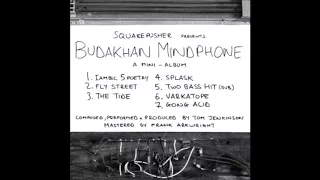 SQUAREPUSHER PRESENTS
BUDAKHAN MINDPHONE
A MINI-ALBUM
1. IAMBIC 5 POETRY
2. FLY STREET
3. THE TIDE
4. SPLASK
5. TWO BASS HIT (DUB)
6. VARKATOPE
7. GONG ACID
COMPOSED, PERFORMED + PRODUCED BY TOM JENKINSON
MASTERED BY FRANK ARKWRIGHT